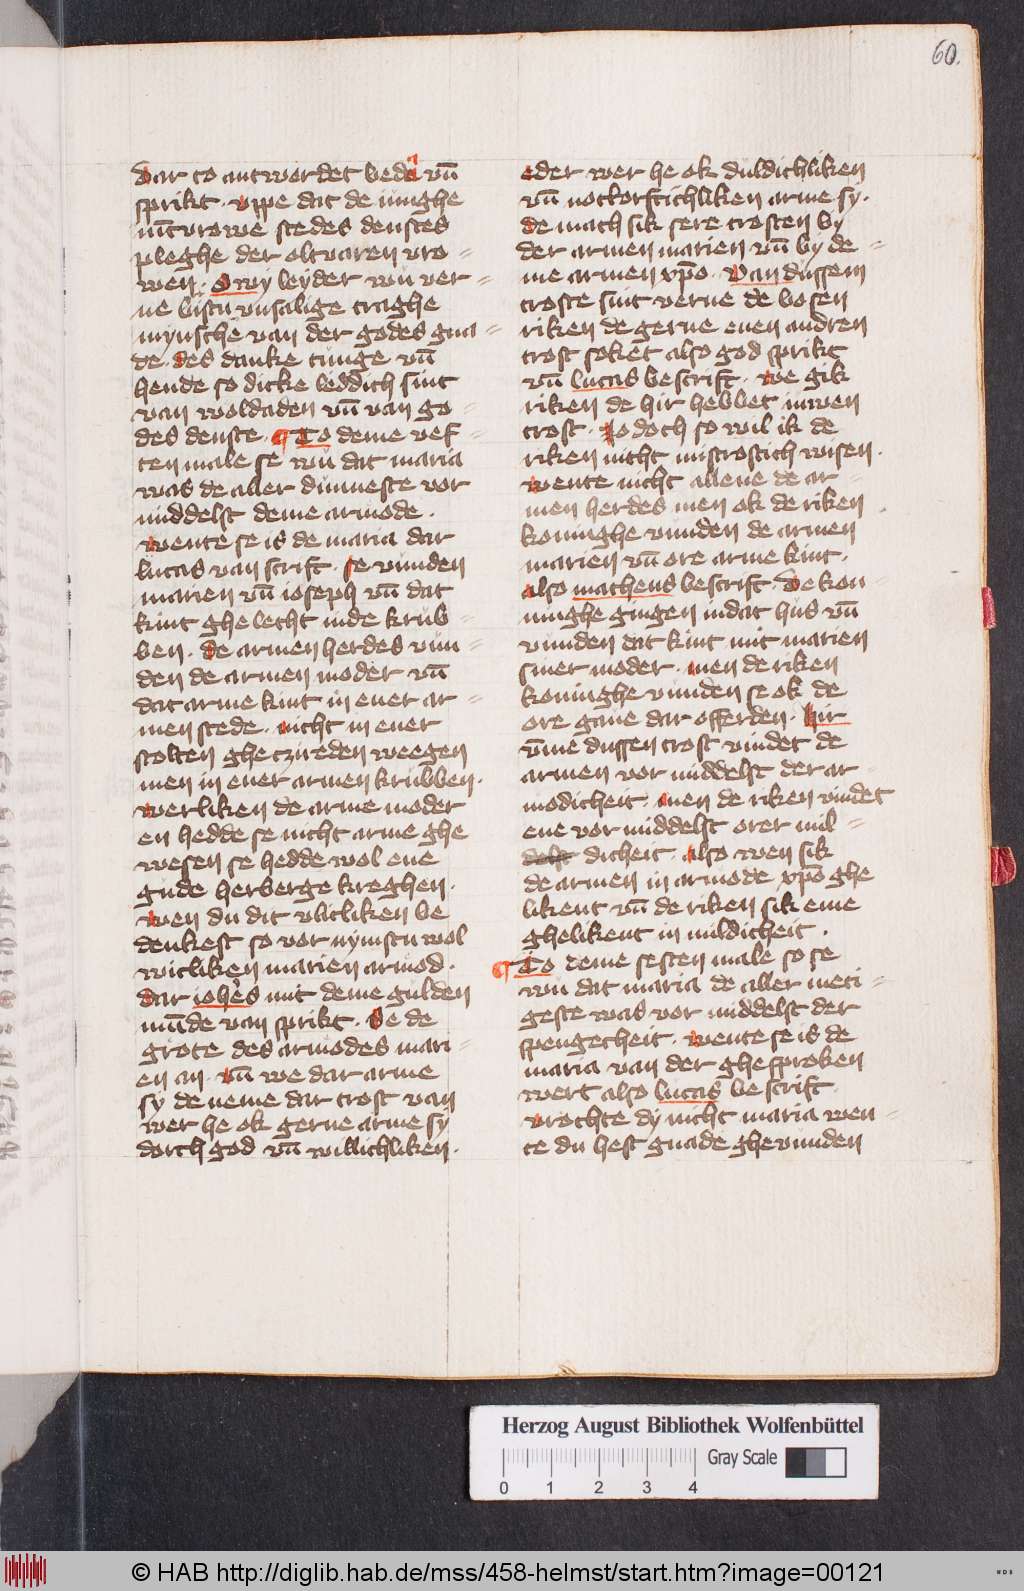 60.
Dar to antwordet beda vn̄
sprikt · vppe dat de iunghe
iūcvrowe stedes denstes
pleghe der oltvaren vro=
wen · Owy leyder wu ver=
ne bistu vnsalige traghe
mynsche van der godes gna=
de · des danke tunge vn̄
hende so dicke leddich sint
van woldaden vn̄ van go=
des denste · ¶ To deme vef=
ten male se wu dat maria
was de aller dunneste vor
middelst deme armode ·
wente se is de maria dar
lucas van scrift · se vunden
marien vn̄ ioseph vn̄ dat
kint ghelecht inde krub=
ben · de armen herdes vun=
den de armen moder vn̄
dat arme kint in ener ar=
men stede · nicht in ener
stolten gheczireden weegen
men in ener armen krubben ·
werliken de arme moder
en hedde se nicht arme ghe
wesen se hedde wol ene
gude herberge kreghen ·
wen du dit vlitliken be
denkest so vor nymstu wol
witliken marien armod ·
dar ioh̄es mit deme gulden
mūde van sprikt · Se de
grote des armodes mari=
en an · vn̄ we dar arme
sy de neme dar trost van
wer he ok gerne arme sy
dorch god vn̄ willichliken ·
oder wer he ok duldichliken
vn̄ nottorftichliken arme sy ·
de mach sik sere trosten by
der armen marien vn̄ by de=
me armen xp̄o · van dussem
troste sint verne de bosen
riken de gerne enen andren
trost soket also god sprikt
vn̄ lucas bescrift · we gik
riken de hir hebbet iuwen
trost · Jo doch so wil ik de
riken nicht mistrostich wisen ·
wente nicht allene de ar=
men herdes men ok de riken
koninghe vunden de armen
marien vn̄ ore arme kint ·
also matheus bescrift · De kon=
ninghe gingen in dat hus vn̄
vunden dat kint mit marien
siner moder · men de riken
koninghe vunden se ok de
ore gaue dar offerden · hir
v̄me dussen trost vindet de
armen vor middelst der ar=
modicheit · men de riken vindet
ene vor middelst orer mil=
dicheit · also wen sik
de armen in armode xp̄o ghe
likent vn̄ de riken sik eme
ghelikent in mildicheit ·
¶ To deme sesten male so se
wu dat maria de aller meti=
geste was vor middelst der
spengetheit · wente se is de
maria van der ghesproken
wert also lucas bescrift ·
vrochte dy nicht maria wen=
te du hest gnade ghevunden
Herzog August Bibliothek Wolfenbüttel
0 1 2 3 4
Gray Scale
© HAB http://diglib.hab.de/mss/458-helmst/start.htm?image=00121